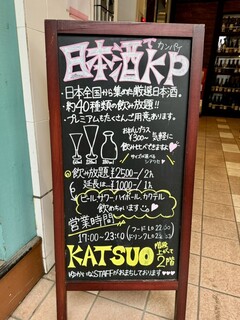 日本酒でKP
カンパイ
・日本全国から集めた厳選日本酒。
・約40種類の飲み放題!!
・プレミアムもたくさんご用意あります。
おためしグラス
¥300〜 気軽に
飲み比べできますよ
サイズが選べる
飲み放題 ¥2500-/2H
延長は… ¥1000-/1H
ビール、サワー、ハイボール、カクテル
飲めちゃいます
営業時間
17:00〜23:00
フード L.O 22:00
ドリンク L.O
KATSUO
階段上がって
2階
ゆかいなSTAFFがおまちしております